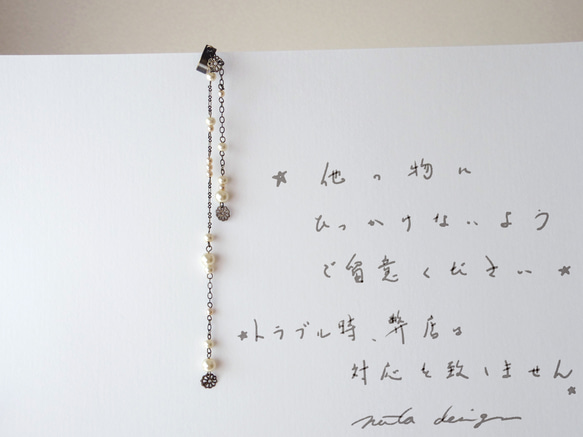 ☆ 他の物に
ひっかけないよう
ご留意ください ☆
☆トラブル時、弊店は
対応を致しません
☆
nuta design